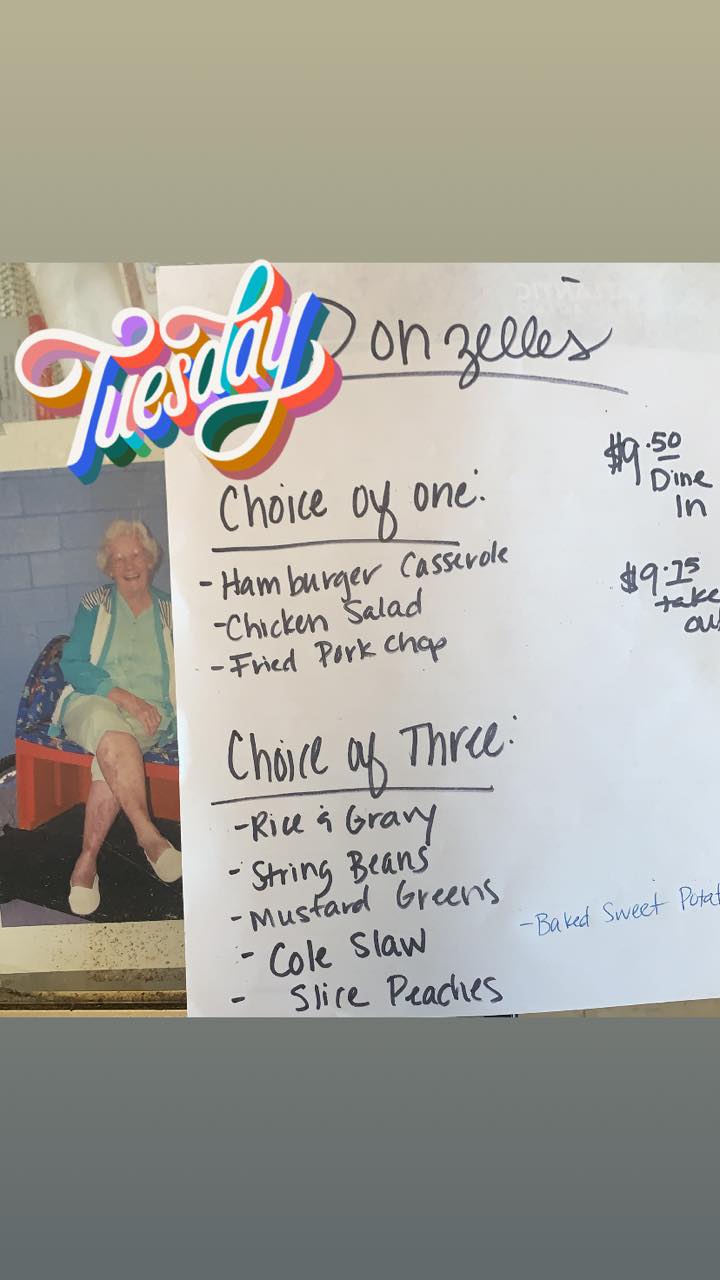 Tuesday
Donzelles
$9.50
Dine
In
Choice of one:
- Hamburger Casserole
- Chicken Salad
- Fried Pork Chop
$9.75
take
Choice of Three:
- Rice & Gravy
- String Beans
- Mustard Greens
- Baked Sweet
- Cole Slaw
- Slice Peaches